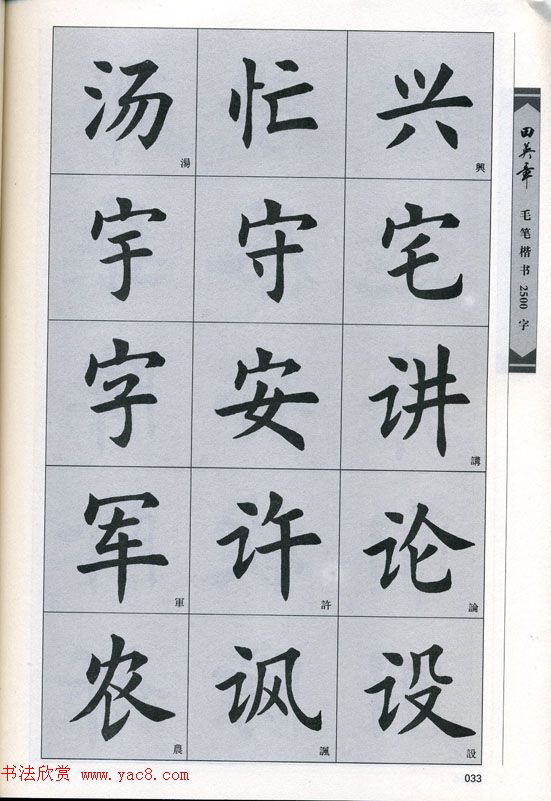 汤 湯 忙 兴 興
宇 守 宅
字 安 讲 講
军 軍 许 許 论 論
农 農 讽 諷 设 設
田英章
毛笔楷书2500字
书法欣赏 www.yac8.com
033